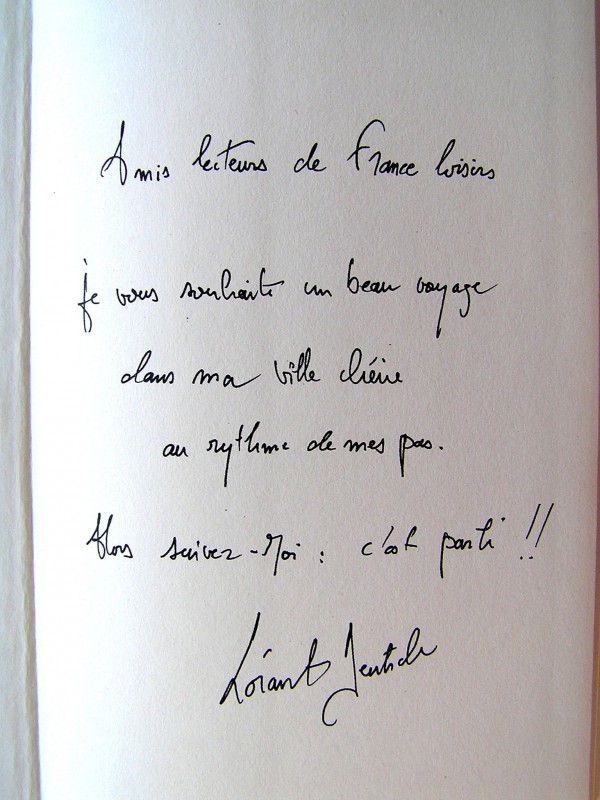 Amis lecteurs de France loisirs
je vous souhaite un beau voyage
dans ma ville chérie
au rythme de mes pas.
Alors suivez-Moi : c'est parti !!
Lorànt Deutsch